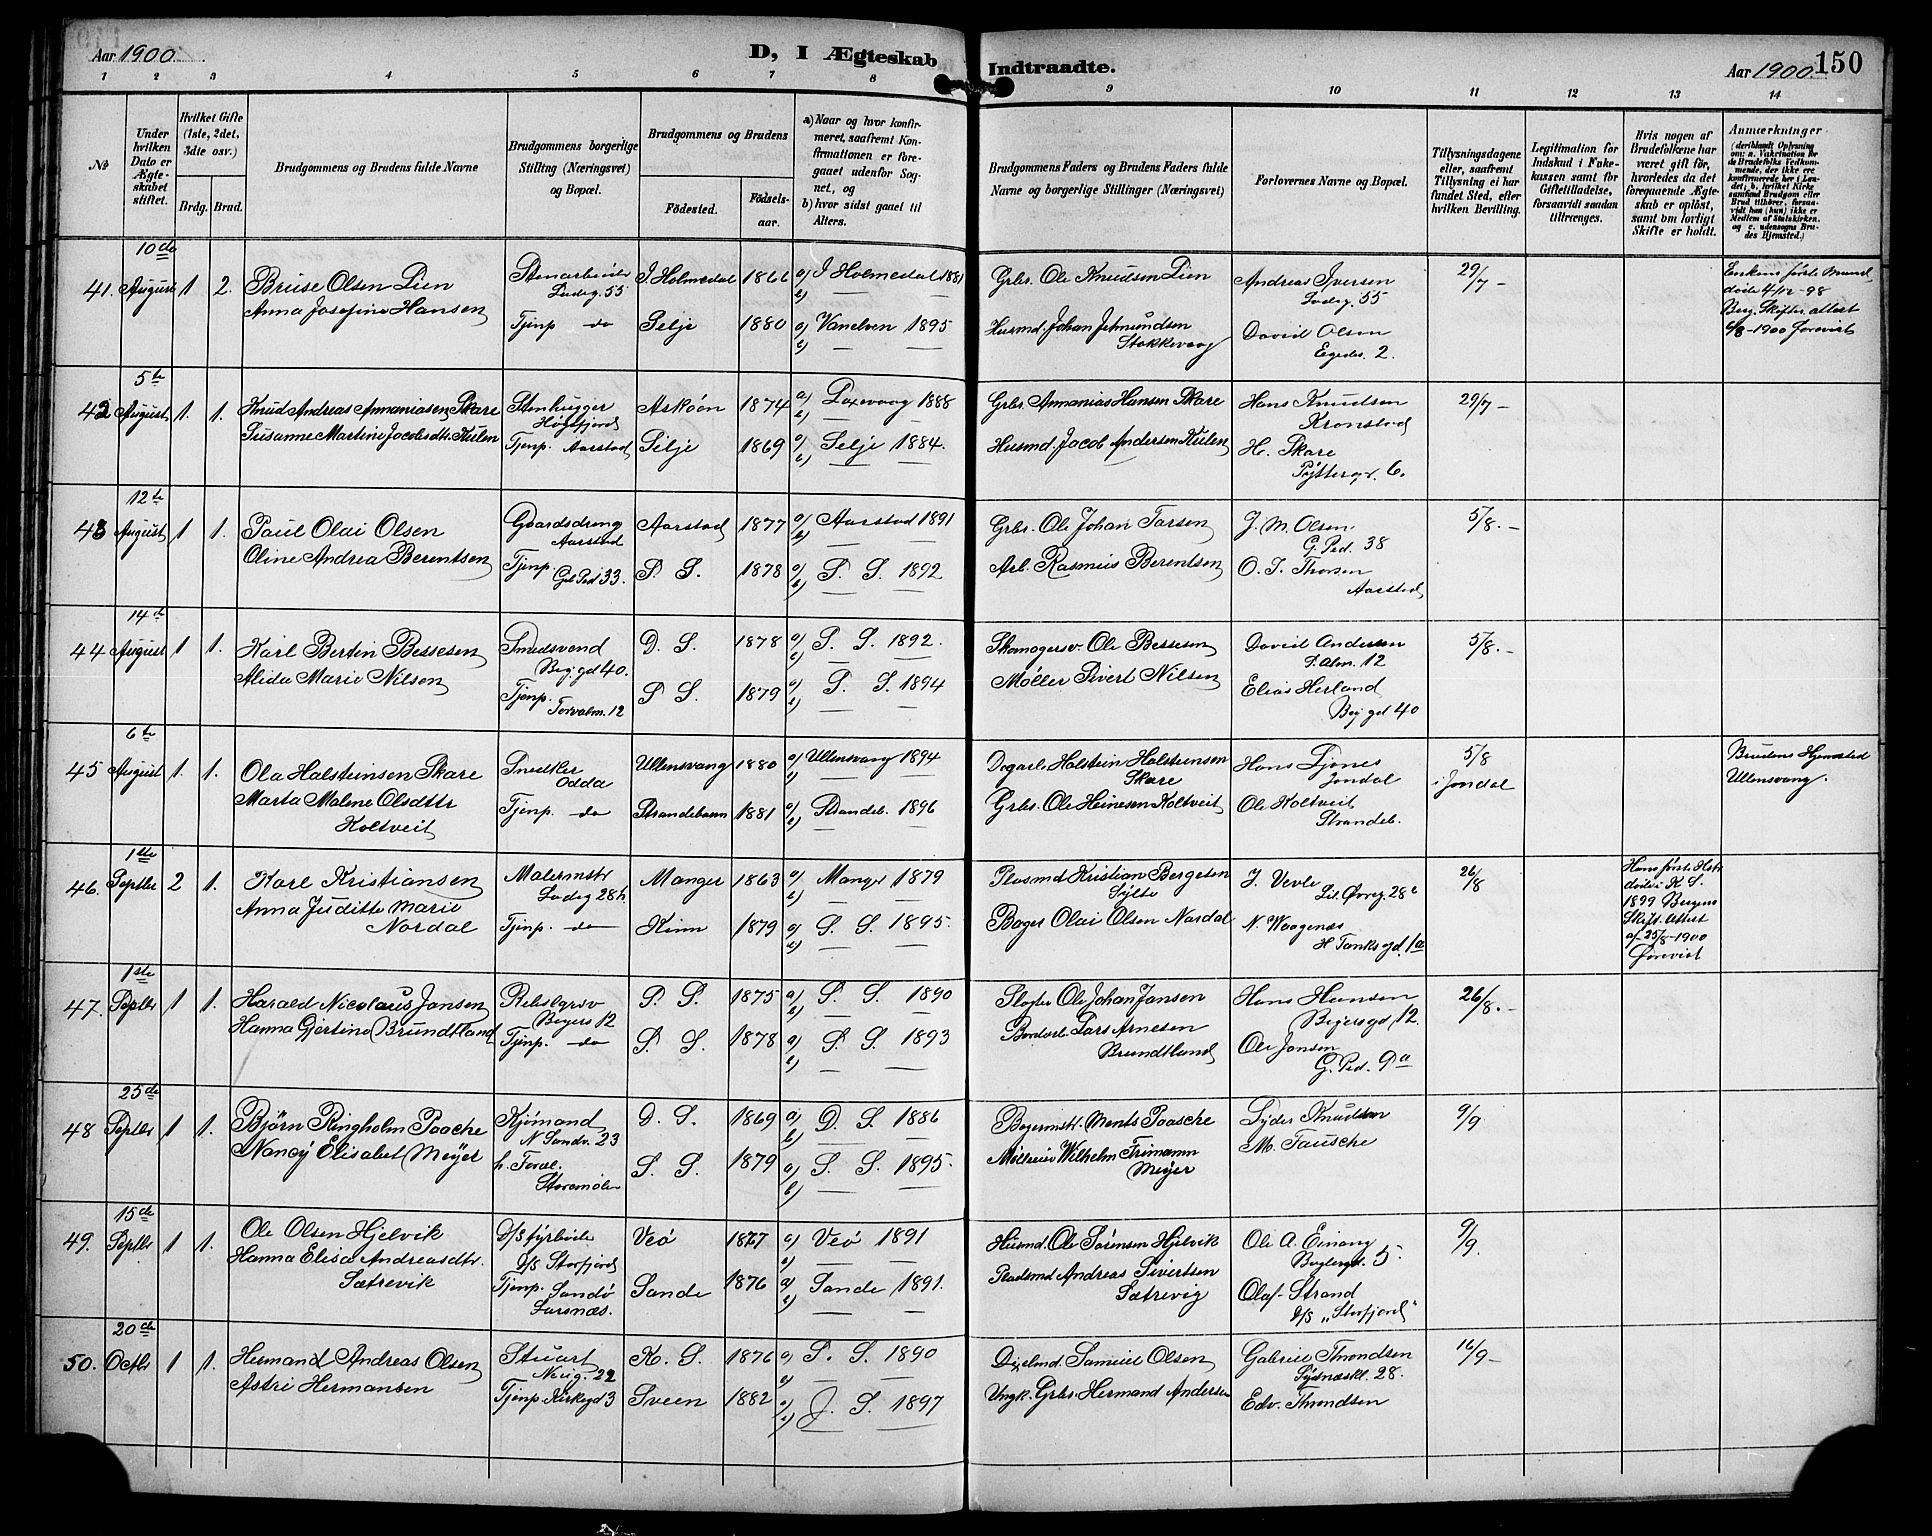 Aar 1900.
D, I Ægteskab
Indtraadte.
Aar 1900.
150
1 2 3 4 5 6 7 8 9 10 11 12 13 14
No
Under hvilken Dato er Ægteskabet stiftet.
Hvilket Gifte (1ste, 2det, 3die osv.)
Brdg. Brud.
Brudgommens og Brudens fulde Navne
Brudgommens borgerlige Stilling (Næringsvei) og Bopæl.
Brudgommens og Brudens
Fødested.
Fødselsaar.
a) Naar og hvor konfirmeret, saafremt Konfirmationen er foregaaet udenfor Sognet, og
b) hvor sidst gaaet til Alters.
Brudgommens Faders og Brudens Faders fulde Navne og borgerlige Stillinger (Næringsvei)
Forlovernes Navne og Bopæl.
Tillysningsdagene eller, saafremt Tillysning ei har fundet Sted, efter hvilken Bevilling.
Legitimation for Indskud i Enkekassen samt for Giftetilladelse, forsaavidt saadan tiltrænges.
Hvis nogen af Brudefolkene har været gift før, hvorledes da det foregaaende Ægteskab er opløst, samt om lovligt Skifte er holdt.
Anmærkninger (deriblandt Oplysning om: a. Vakcination for de Brudefolks Vedkommende, der ikke ere konfirmerede her i Landet; b. hvilket Kirkesamfund Brudgom eller Brud tilhører, forsaavidt han (hun) ikke er Medlem af Statskirken, og c. udensogns Brudes Hjemsted.)
10de
41. August 1 2. Bruse Olsen Lien
Ladeg. 55 J. Holmedal 1866 a) J Holmedal 1881
Grbr. Ole Knudsen Lien Andreas Iversen Ladeg. 55 29/7 -
Enkens første Mand døde 4/12-98 Berg. Skifter. attest 6/8-1900 forevist
Anna Josefine Hansen Tjenp do Selje 1880 a) Vanelven 1895
Husmd. Johan Stokkevaag David Olsen Egedes. 2.
5te
42 August 1. 1. Knud Andreas Annaniasen Skare
Stenhugger Askøen 1874 a) Laxevaag 1888
Grbr. Annanias Hansen Skare Hans Knudsen Kronstad 29/7 -
Susanne Martine Jacobsdtr. Kulen Tjenp. Aarstad Silje 1869 a) Selje 1884.
Husmd. Jacob Andersen Kulen H. Skare Pyttergr. 6.
12te
43 August 1 1. Paul Olai Olsen
Gaardsdreng Aarstad Aarstad 1877 a) Aarstad 1891
Grbr. Ole Johan Tarsen J. M. Olsen G. Ped. 38 5/8. -
Oline Andrea Berentsen Tjenp. 33. S. S. 1878 a) S. S. 1892
Arb. Rasmus Berentsen O. J. Thorsen Aarstad
14de
44 August 1 1. Karl Bertin Bessesen
Smedsvend 40. D. S. 1878 a) S. S. 1892.
Ole Bessesen David Andersen 12 5/8. -
Alida Marie Nilsen Tjenp. Torvalm. 12 S. S. 1879 a) S. S. 1894
Møller Sivert Nilsen Elias Herland 40
6te
45 August 1. 1. Ola Halsteinsen Skare
Snedker Odda Ullensvang 1880 a) Ullensvang 1894
Halstein Halsteinsen Skare Hans Jondal 5/8 i Jondal
Brudens Hjemsted Ullensvang.
Marta Malene Olsdttr Koltveit Tjenp. do Strandebarm 1881 a) Strandeb. 1896
Grbr. Ole Heinesen Koltveit Ole Koltveit Strandeb.
1ste
46. Septbr 2 1. Karl Kristiansen
Malermstr Ladeg 28 h Manger 1863 a) Manger 1879
Pladsmd Kristian Bergesen Sylte J. Vevle 28 26/8
Hans første Hstr døde i K. S. 1899 Bergens Skift. attest af 25/8-1900 forevist
Anna Juditte Marie Nordal Tjenp. do Kinn 1879 a) S. S. 1895.
Bager Olai Olsen Nordal N. Waagenes H Tanks gd. 1a
1ste
47. Septbr 1 1. Harald Nicolaus Jansen
12 S. S. 1875 a) S. S. 1890
Slagter Ole Johan Jansen Hans Hansen Beyersgd. 12. 26/8. -
Hanna Gjertine Brundtland Tjenp. do S. S. 1878 a) S. S. 1893
Lars Arnesen Brundtland Ole Jansen G. Ped. 9a
25de
48 Septbr 1 1. Bjørn Ringholm Paasche
Kjømand N. Sandv. 23 D. S. 1869 a) D. S. 1886
Ments Paasche Lyder Knudsen 9/9.
Nancy Elisabet Meyer Storemølen S. S. 1879 a) S. S. 1895.
Mølleeier Wilhelm Frimann Meyer M. Tausche
15de
49. Septbr 1 1. Ole Olsen Hjelvik
D/S fyrbøder D/S Storfjord Veø 1877 a) Veø 1891
Husmd. Ole Sørensen Hjelvik Ole A. Einang 5 9/9.
Hanna Elisa Andreasdtr. Sætrevik Tjenp. Sandø Larsnæs. Sande 1876 a) Sande 1891.
Pladsmd Andreas Sivertsen Sætrevig Olaf Strand D/S „Storfjord"
20de
50. Octbr 1 1. Hermand Andreas Olsen
Stuart Neug. 22 K. S. 1876 a) S. S. 1890
Samuel Olsen Gabriel Throndsen Sydnæskl. 28. 16/9 -
Astri Hermansen Tjenp. Kirkegd 3 Sveen 1882 a) J. S. 1897
Ungk. Grbr. Hermand Andersen Edv. Throndsen